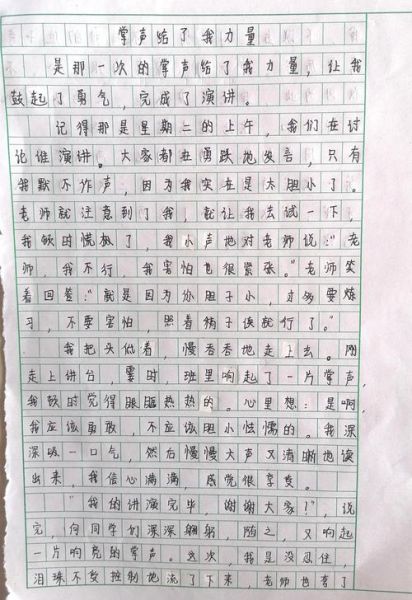 掌声给了我力量
是那一次的掌声给了我力量，让我
鼓起了勇气，完成了演讲。
记得那是星期二的上午，我们在讨
论谁演讲。大家都在勇跃地发言，只有
我默不作声，因为我实在是太胆小了。
老师就注意到了我，就让我去试一下，
我顿时慌极了，我小声地对老师说：“老
师，我不行，我害怕也很紧张。”老师笑
着回答：“就是因为你胆子小，才要练
习，不要害怕，照着稿子读就行了。”
我把头低着，慢吞吞地走上去。刚
走上讲台，霎时，班里响起了一片掌声，
我顿时觉得眼眶热热的。心里想：是啊，
我应该勇敢，不应该胆小怯懦的。我深
深吸一口气，然后慢慢大声又清晰地读
出来，我信心满满，感觉很享受。
“我的讲演完毕，谢谢大家！”，说
完，向同学们深深鞠躬，随之，又响起
一片响亮的掌声。这次，我是没忍住，
泪珠不受控制地流了下来，老师也夸了